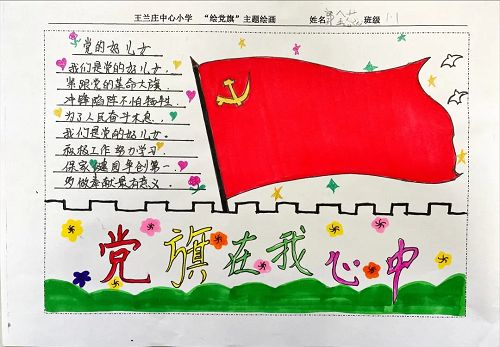 王兰庄中心小学 “绘党旗”主题绘画 姓名 班级 1.1
党的好儿女
我们是党的好儿女.
紧跟党的革命大旗.
冲锋陷阵不怕牺牲.
为了人民奋斗不息.
我们是党的好儿女.
积极工作努力学习.
保家建国争创第一.
多做奉献最有意义.
党旗在我心中